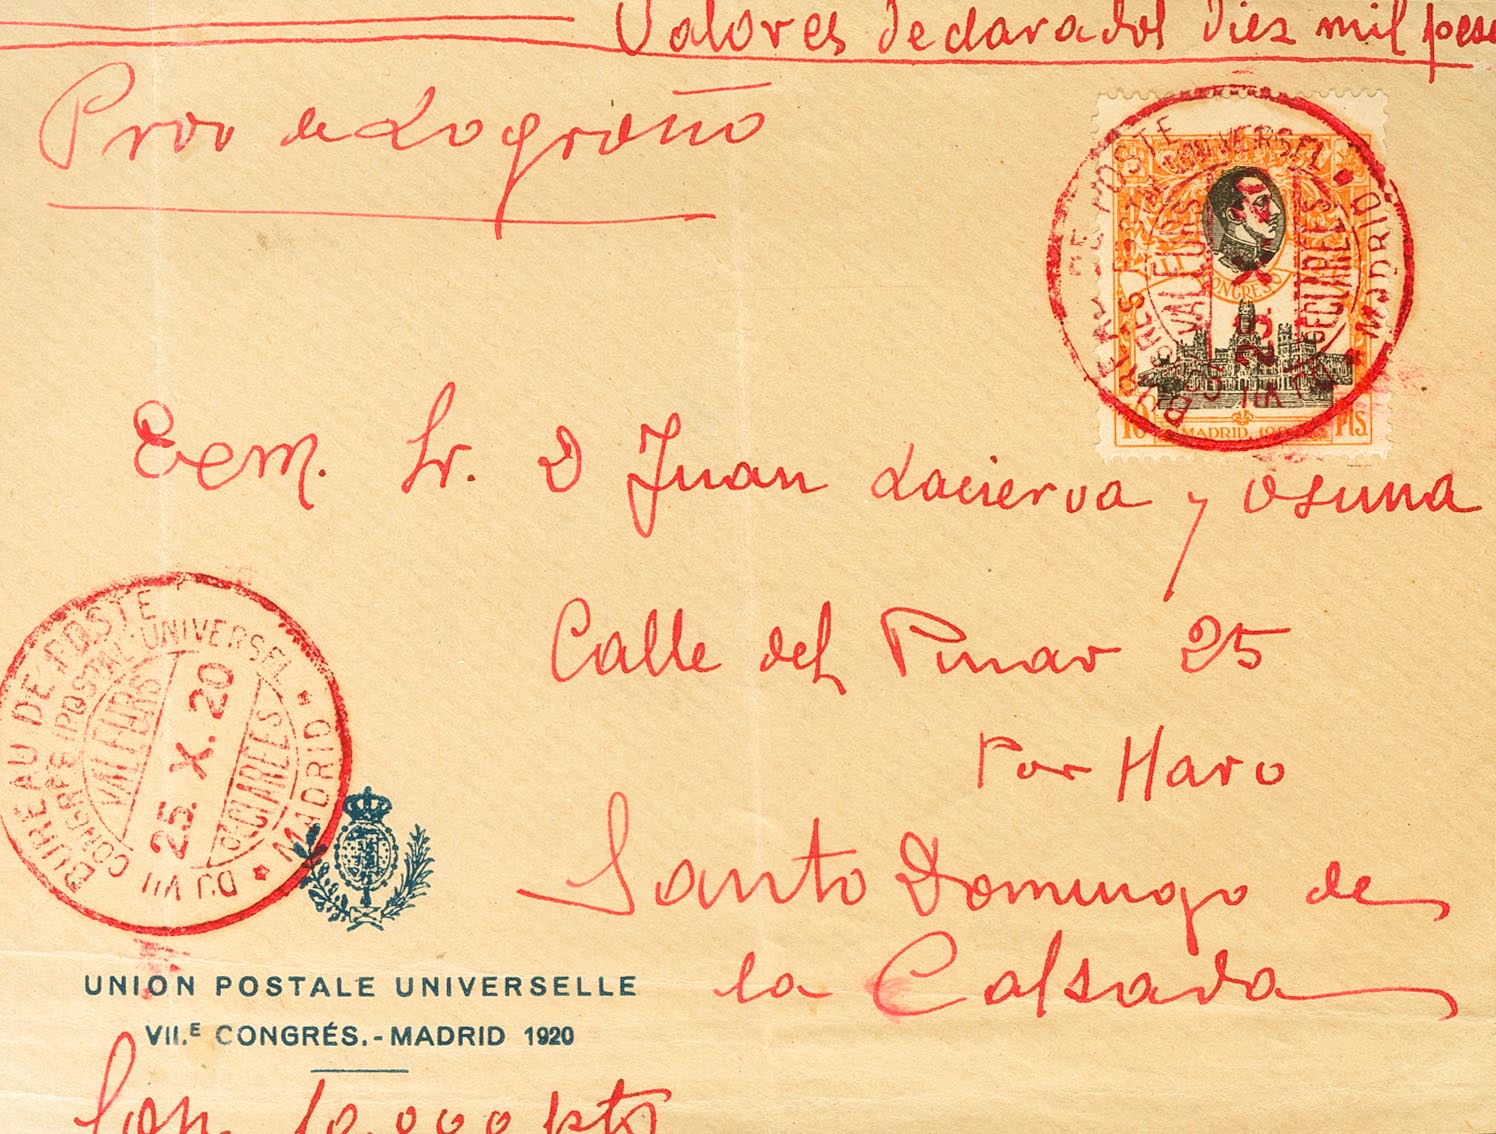 Valores declarados diez mil pese
Prov de Logroño
BUREAU DE POSTE * MADRID *
DU VII CONGRÈS POSTAL UNIVERSEL
VALEURS DECLAREES
25 X
CONGRESO
10 PTS.
MADRID, 19
Exm. Sr. D Juan Lacierva y Osuna
Calle del Pinar 25
por Haro
Santo Domingo de
la Calsada
BUREAU DE POSTE * MADRID *
DU VII CONGRÈS POSTAL UNIVERSEL
VALEURS DECLAREES
25. X. 20
UNION POSTALE UNIVERSELLE
VII.E CONGRÉS.-MADRID 1920
Son 10.000 pts